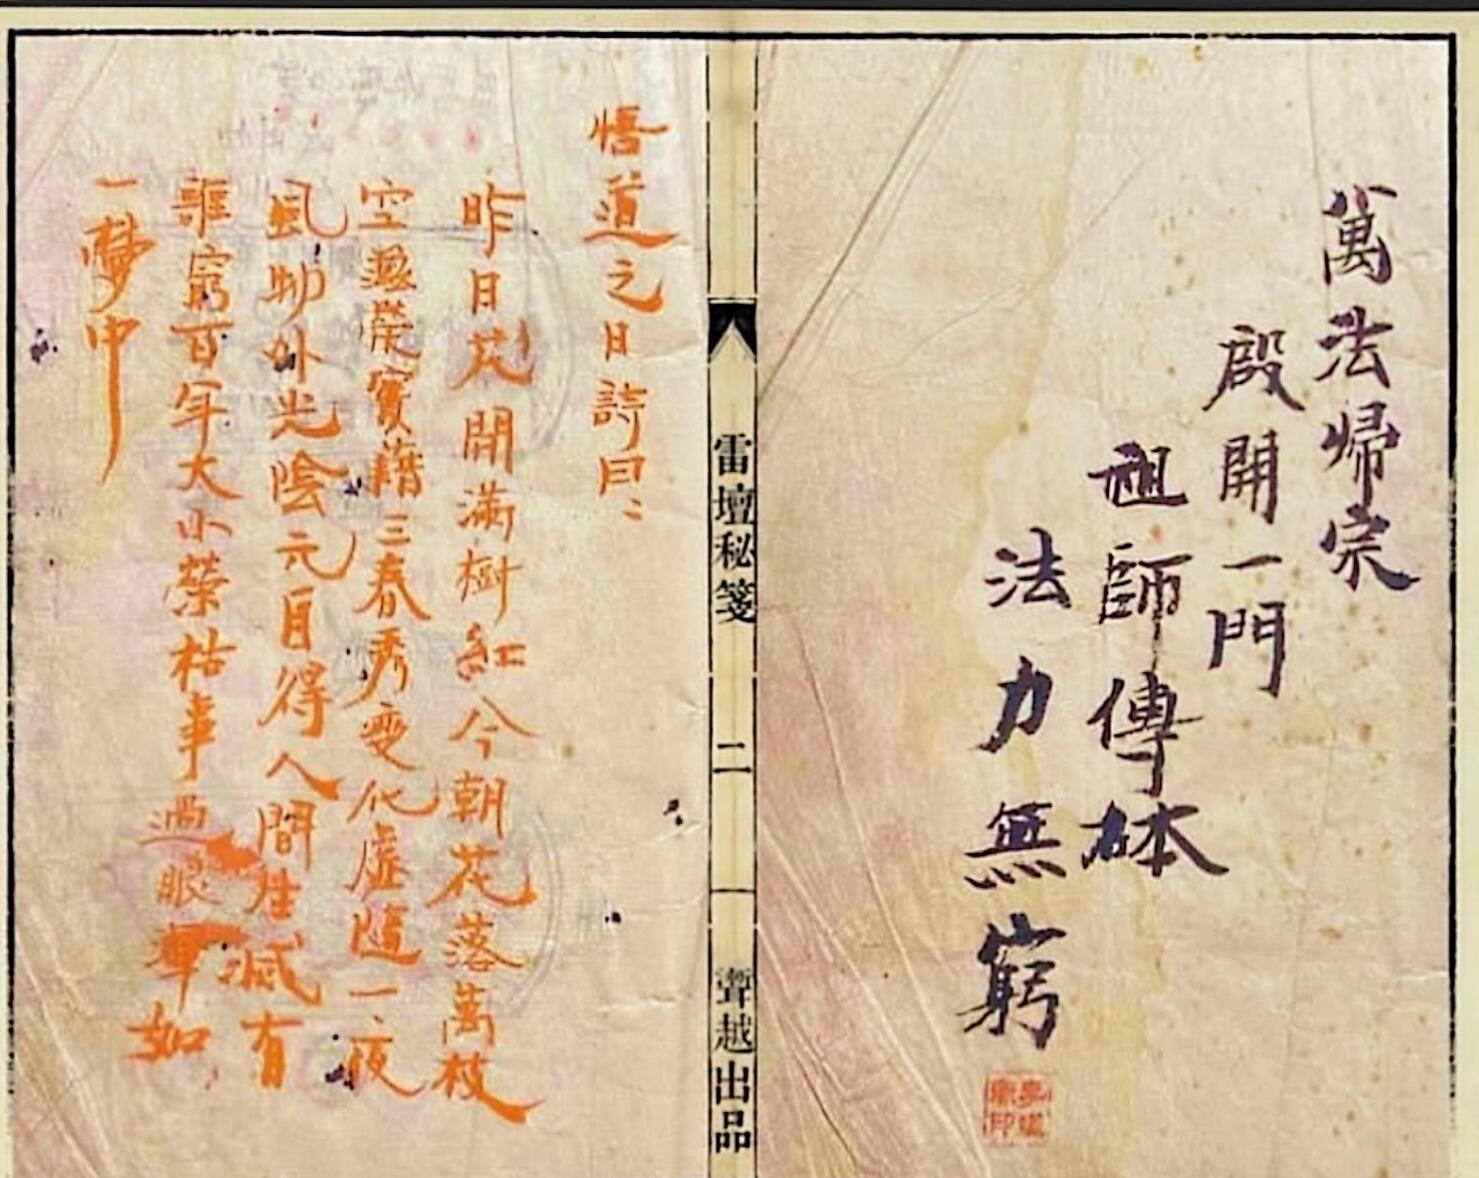 萬法帰宗
啟開一門
祖師傳砵
法力無窮
雷壇秘箋
二
聲越出品
悟道之日詩曰：
昨日花開滿樹紅今朝花落萬枝
空滋榮實藉三春秀变化虛隨一夜
風物外光陰元自得人間生滅有
誰窮百年大小榮枯事過眼渾如
一夢中